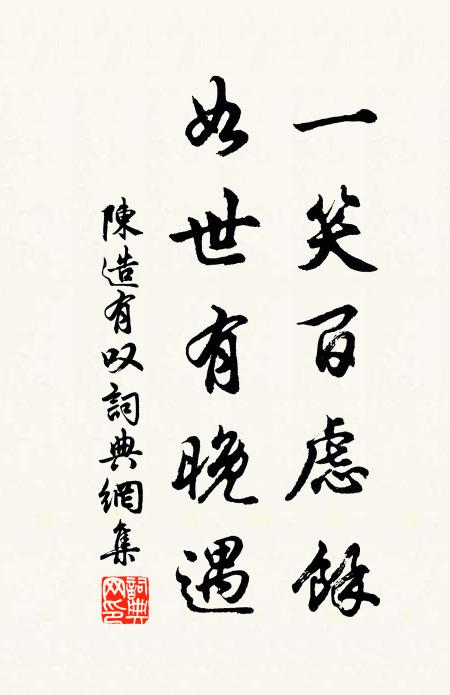 一笑百慮餘
如世有晚遇
陳造有叹詞典網集
詞典網印